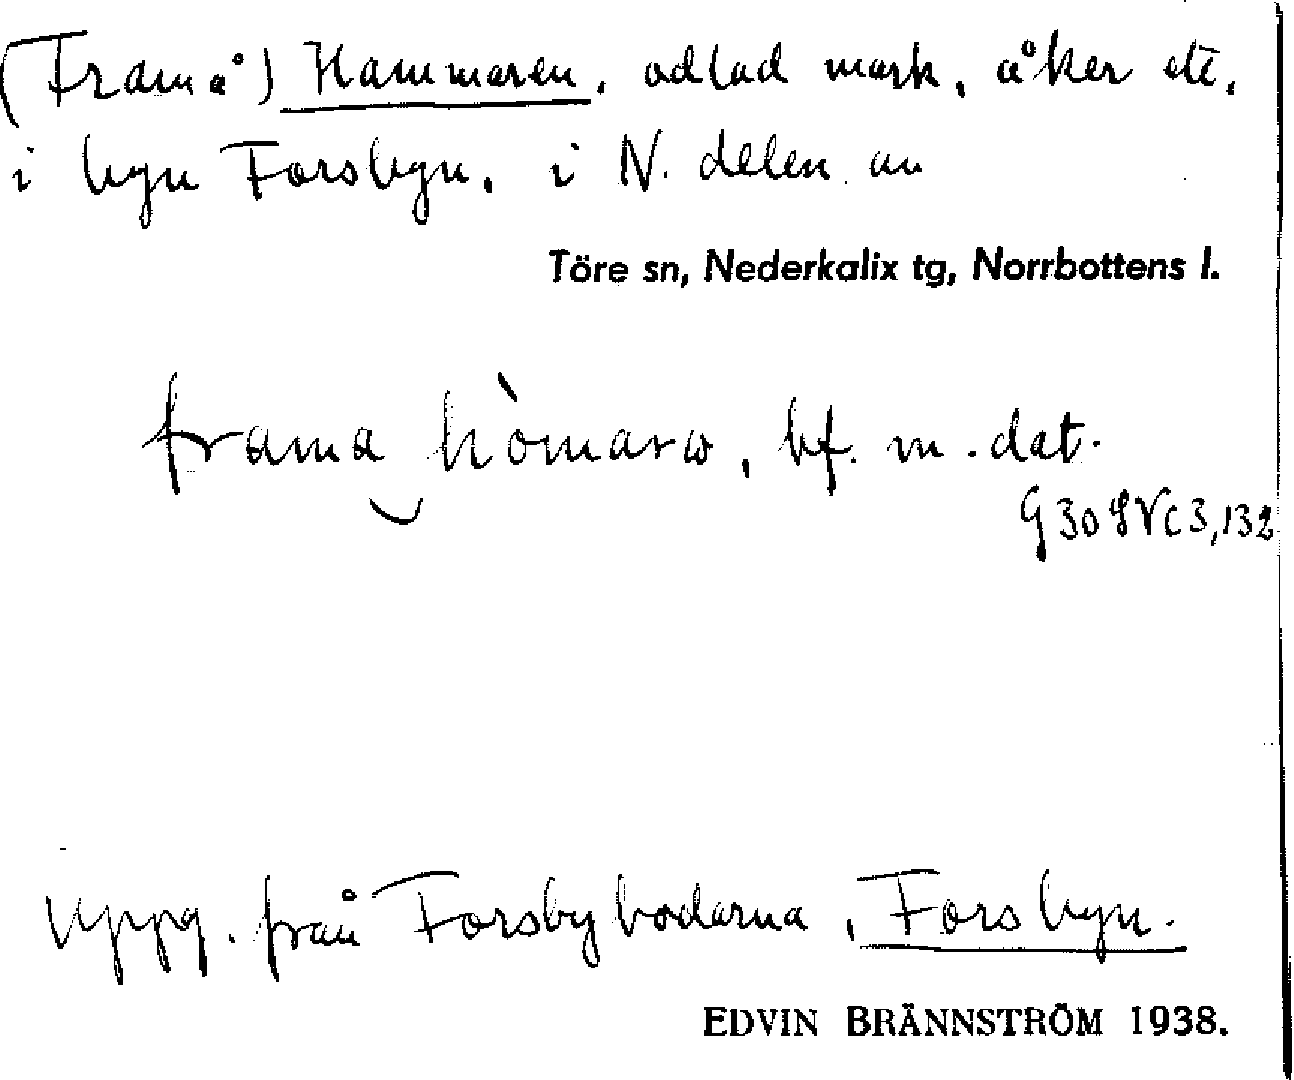 (Framå) Hammaren, odlad mark, åker etc.
i byn Forsbyn, i N. delen av
Töre sn, Nederkalix tg, Norrbottens l.
frama hòmarω, bf. m. dat.
G 30 SVC 3,132
Uppg. från Forsbybodarna, Forsbyn.
EDVIN BRÄNNSTRÖM 1938.